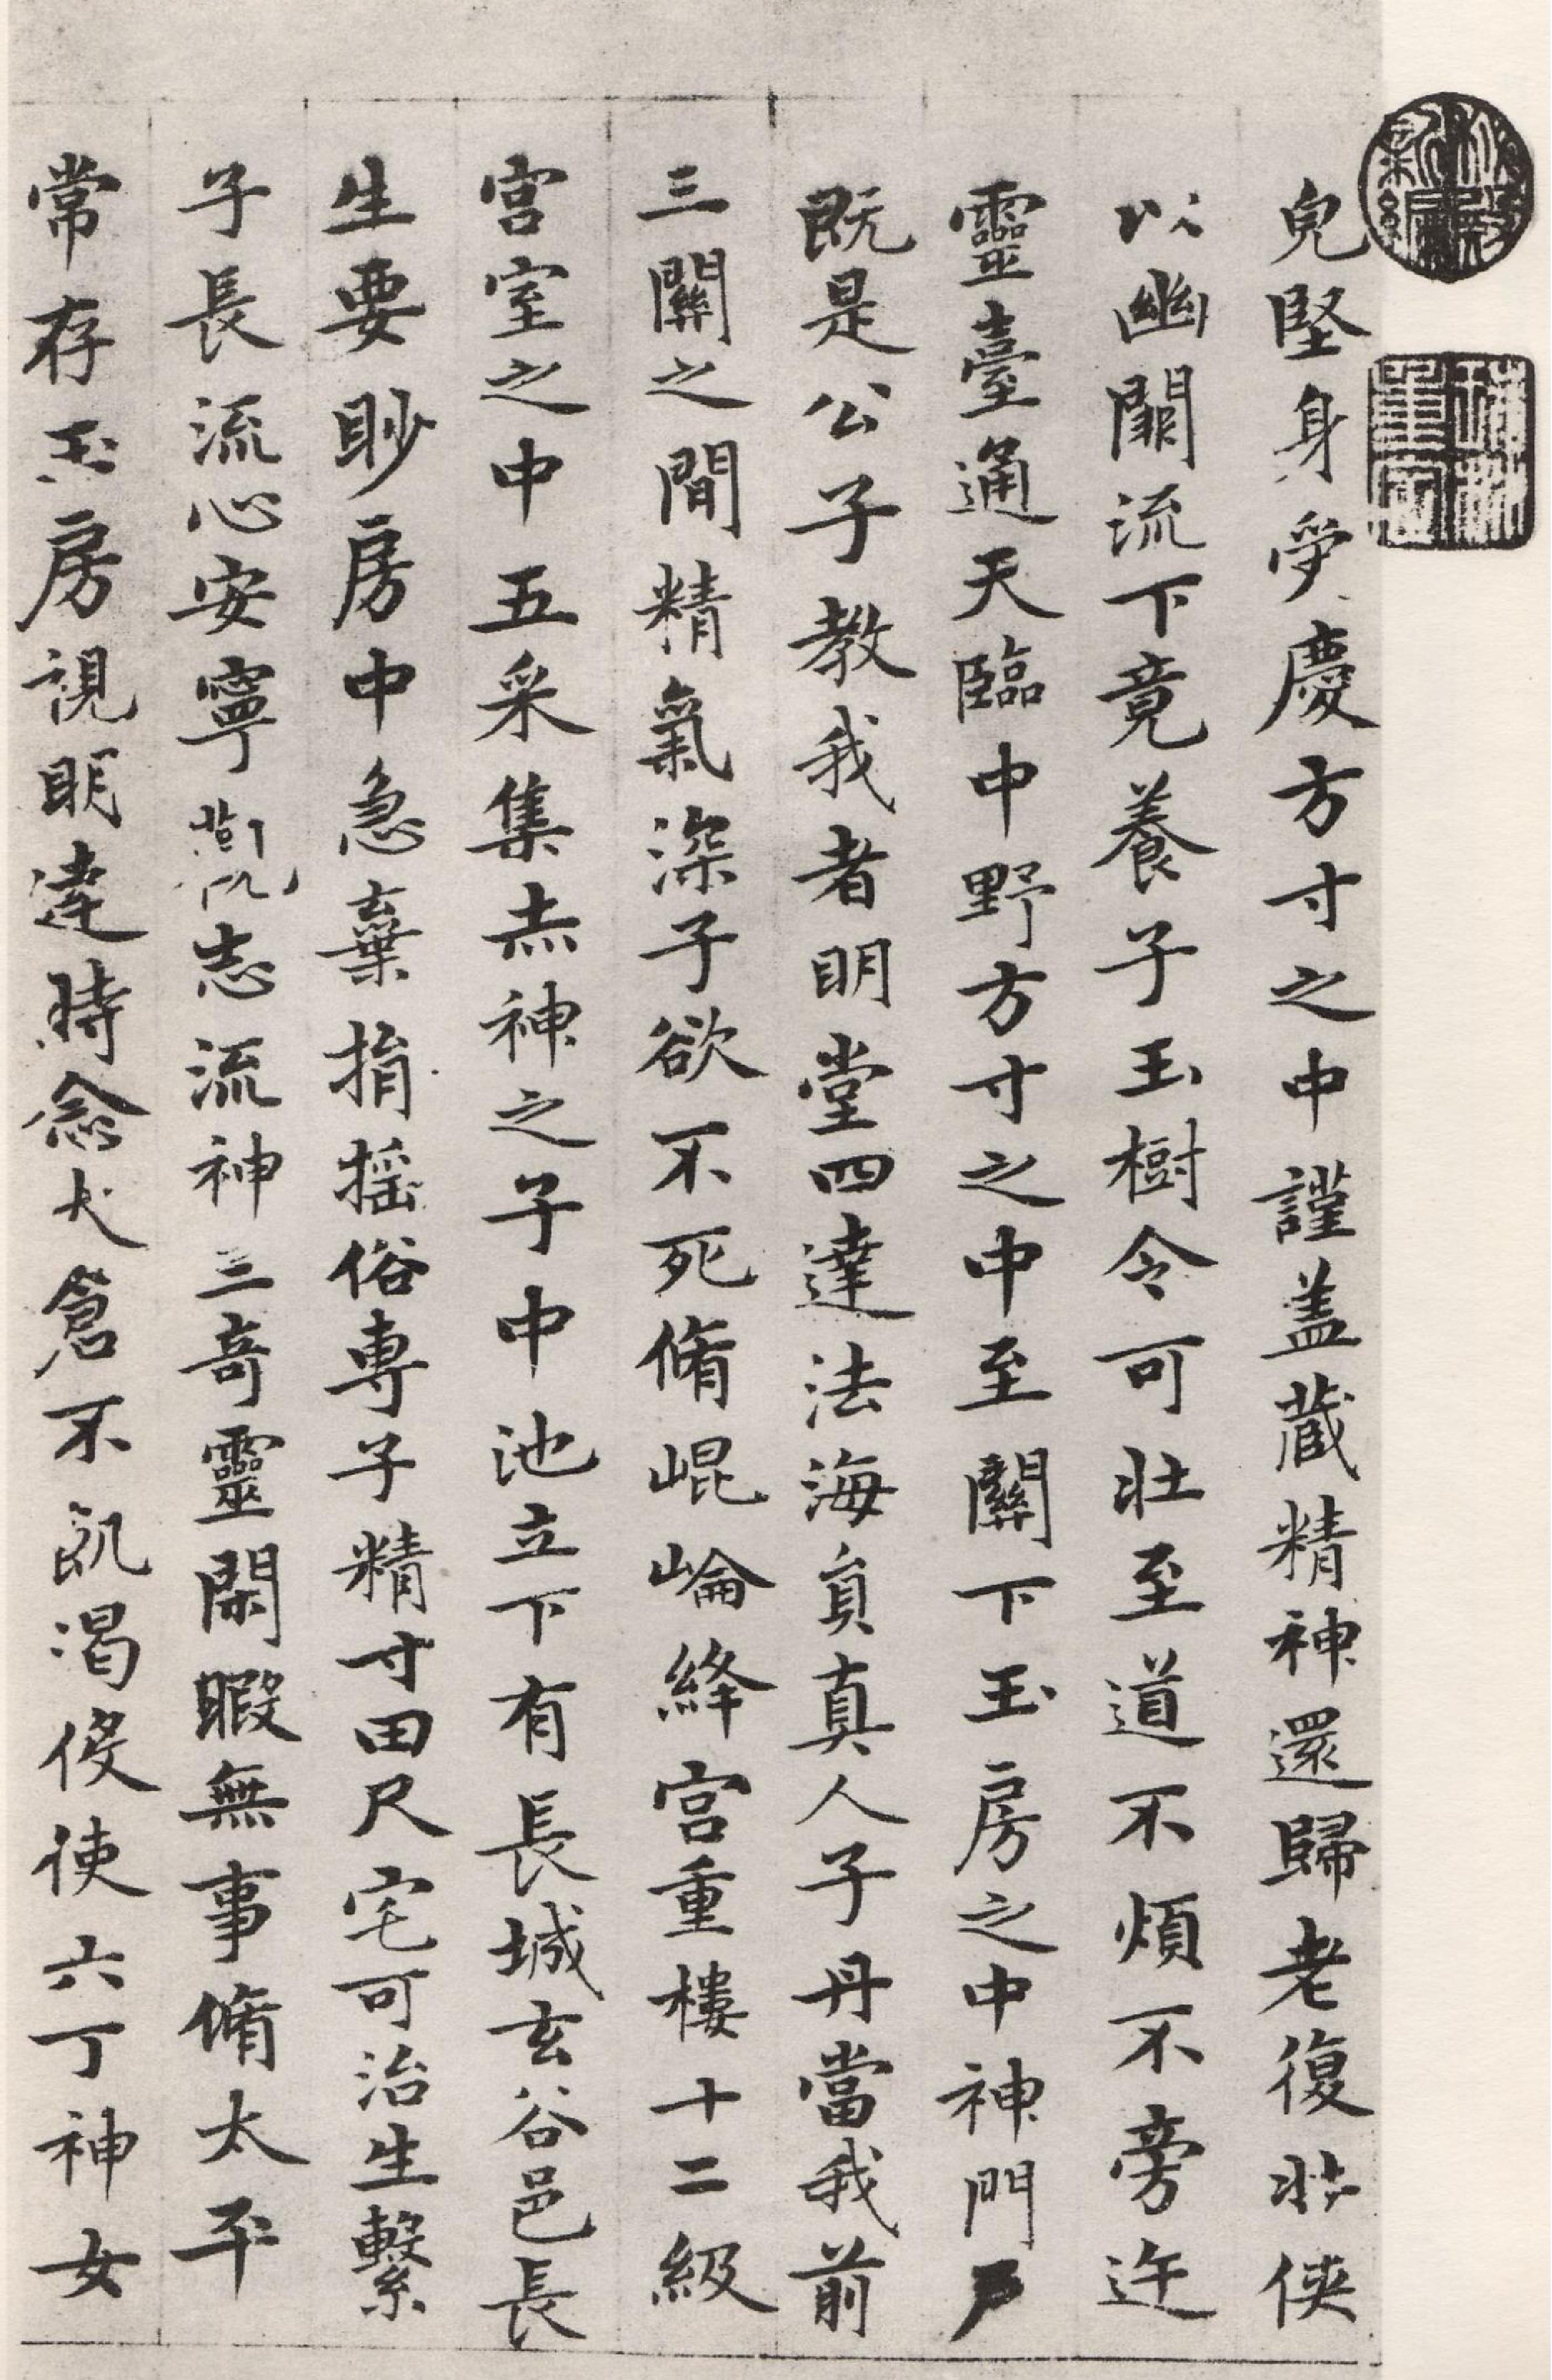 皃堅身受慶方寸之中謹盖蔵精神還歸老復壯俠
以幽關流下竟養子玉樹令可壯至道不煩不旁迕
靈臺通天臨中野方寸之中至關下玉房之中神門戶
既是公子教我者明堂四達法海員真人子丹當我前
三關之間精氣深子欲不死脩崐崘絳宮重樓十二級
宮室之中五采集赤神之子中池立下有長城玄谷邑長
生要眇房中急棄捐摇俗専子精寸田尺宅可治生繫
子長流心安寧志流神三奇靈閑暇無事脩太平
常存玉房視明達時念大倉不飢渴伇使六丁神女